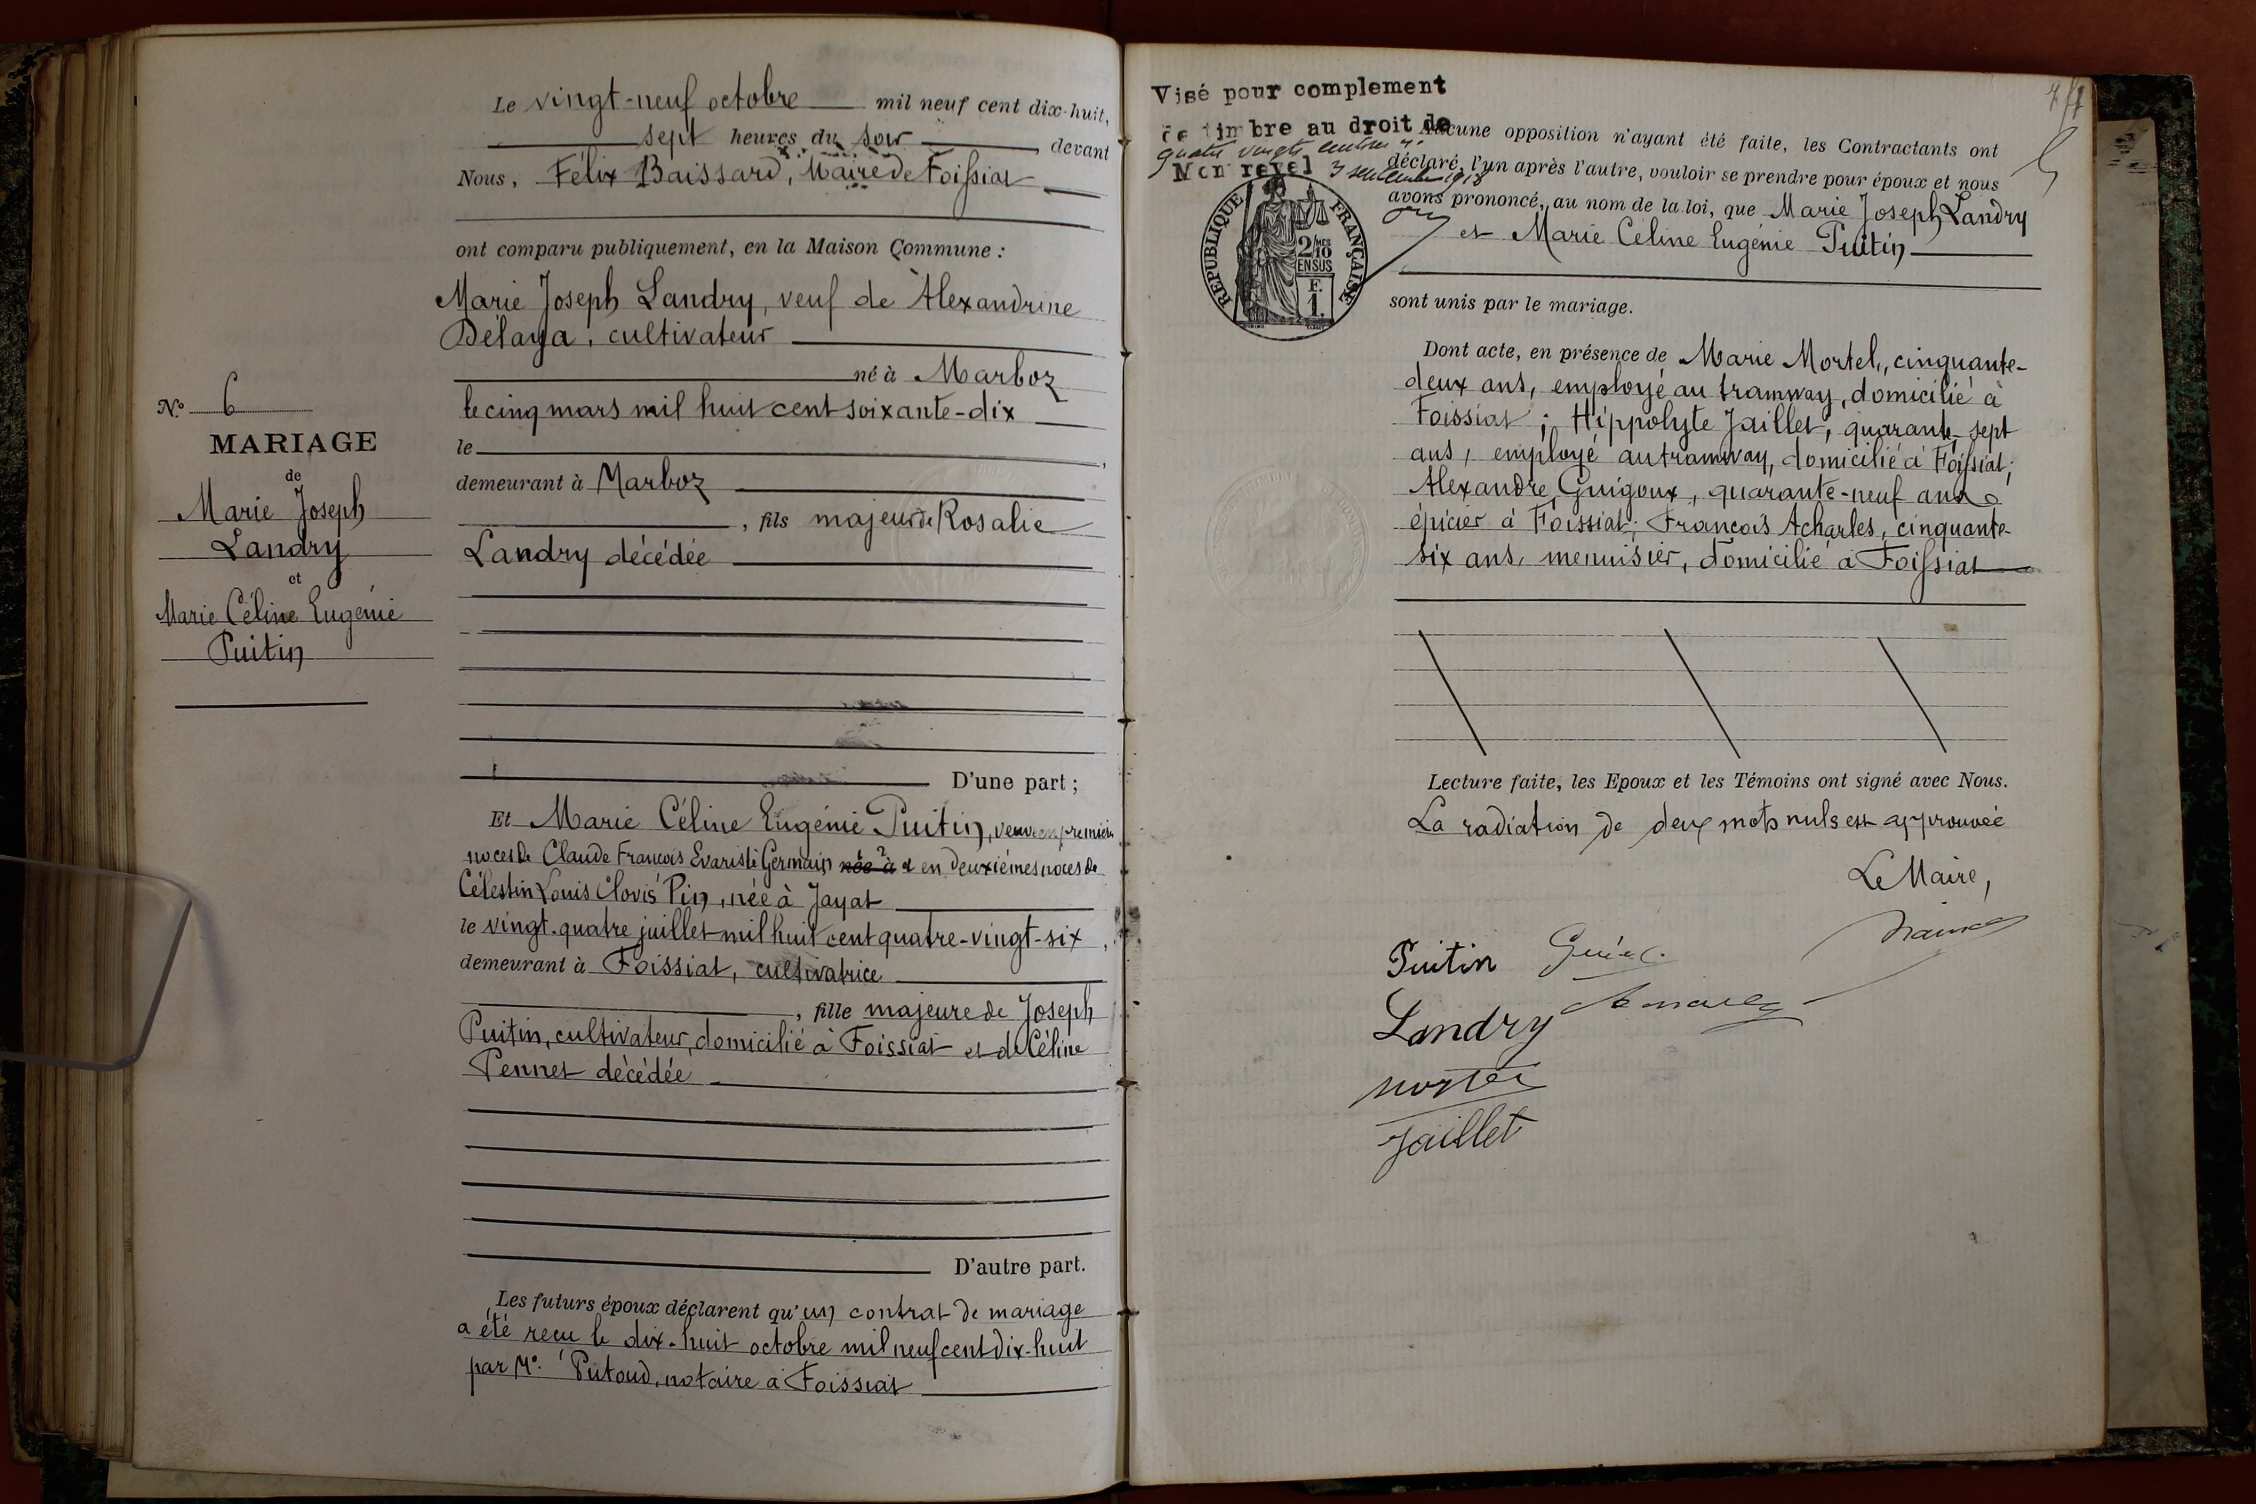 Le vingt-neuf octobre mil neuf cent dix-huit,
sept heures du soir, devant
Nous, Félix Baissard, Maire de Foissiat
ont comparu publiquement, en la Maison Commune :
Marie Joseph Landry, veuf de Alexandrine
Delaya, cultivateur
né à Marboz
le cinq mars mil huit cent soixante-dix
le
demeurant à Marboz
, fils majeur de Rosalie
Landry décédée
D'une part ;
N° 6
MARIAGE
de
Marie Joseph
Landry
et
Marie Céline Eugénie
Puitin
Et Marie Céline Eugénie Puitin, veuve en premières
noces de Claude François Evariste Germain née à et en deuxièmes noces de
Célestin Louis Clovis Pin, née à Jayat
le vingt-quatre juillet mil huit cent quatre-vingt-six,
demeurant à Foissiat, cultivatrice
, fille majeure de Joseph
Puitin, cultivateur, domicilié à Foissiat et de Céline
Pennet décédée
D'autre part.
Les futurs époux déclarent qu'un contrat de mariage
a été reçu le dix-huit octobre mil neuf cent dix-huit
par Me. Putoud, notaire à Foissiat
Visé pour complement
de timbre au droit de
quatre vingts centimes
Montrevel 3 septembre 1918
RÉPUBLIQUE FRANÇAISE
2/10
EN SUS
F.
1.
Aucune opposition n'ayant été faite, les Contractants ont
déclaré, l'un après l'autre, vouloir se prendre pour époux et nous
avons prononcé, au nom de la loi, que Marie Joseph Landry
et Marie Céline Eugénie Puitin
sont unis par le mariage.
Dont acte, en présence de Marie Mortel, cinquante-
deux ans, employé au tramway, domicilié à
Foissiat ; Hippolyte Jaillet, quarante-sept
ans, employé au tramway, domicilié à Foissiat ;
Alexandre Guigoux, quarante-neuf ans
épicier à Foissiat ; François Acharles, cinquante-
six ans, menuisier, domicilié à Foissiat
Lecture faite, les Epoux et les Témoins ont signé avec Nous.
La radiation de deux mots nuls est approuvée
Le Maire,
Puitin
Landry
Jaillet